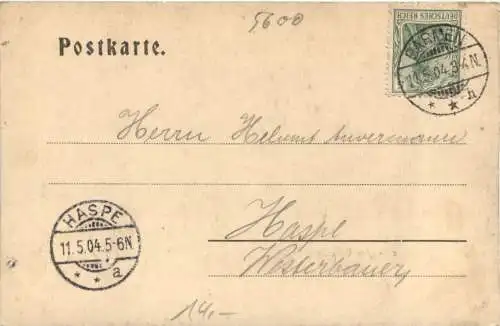 5600
DEUTSCHES REICH
Postkarte.
BARMEN
11.5.04.3-4N.
* * h
Herrn Helmut Anvermann
HASPE
11.5.04.5-6N
* * a
Haspe
Westerbauer
14.-